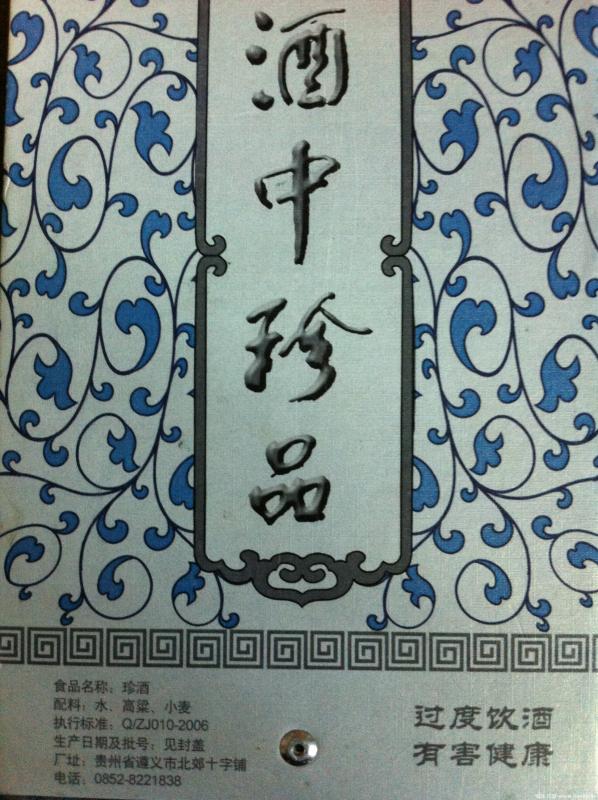 酒中珍品
食品名称：珍酒
配料：水、高粱、小麦
执行标准：Q/ZJ010-2006
生产日期及批号：见封盖
厂址：贵州省遵义市北郊十字铺
电话：0852-8221838
过度饮酒
有害健康